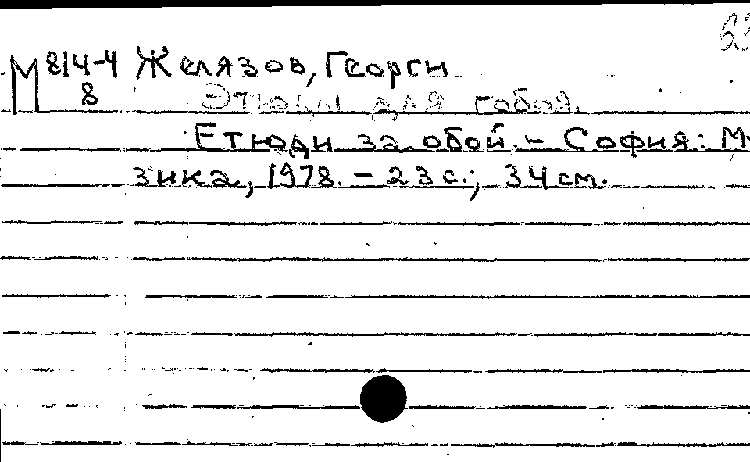 63
М 814-4 Желязов, Георги
8 Этюды для гобоя.
Етюди за обой. - София: Му-
зика, 1978. - 23 с.; 34 см.